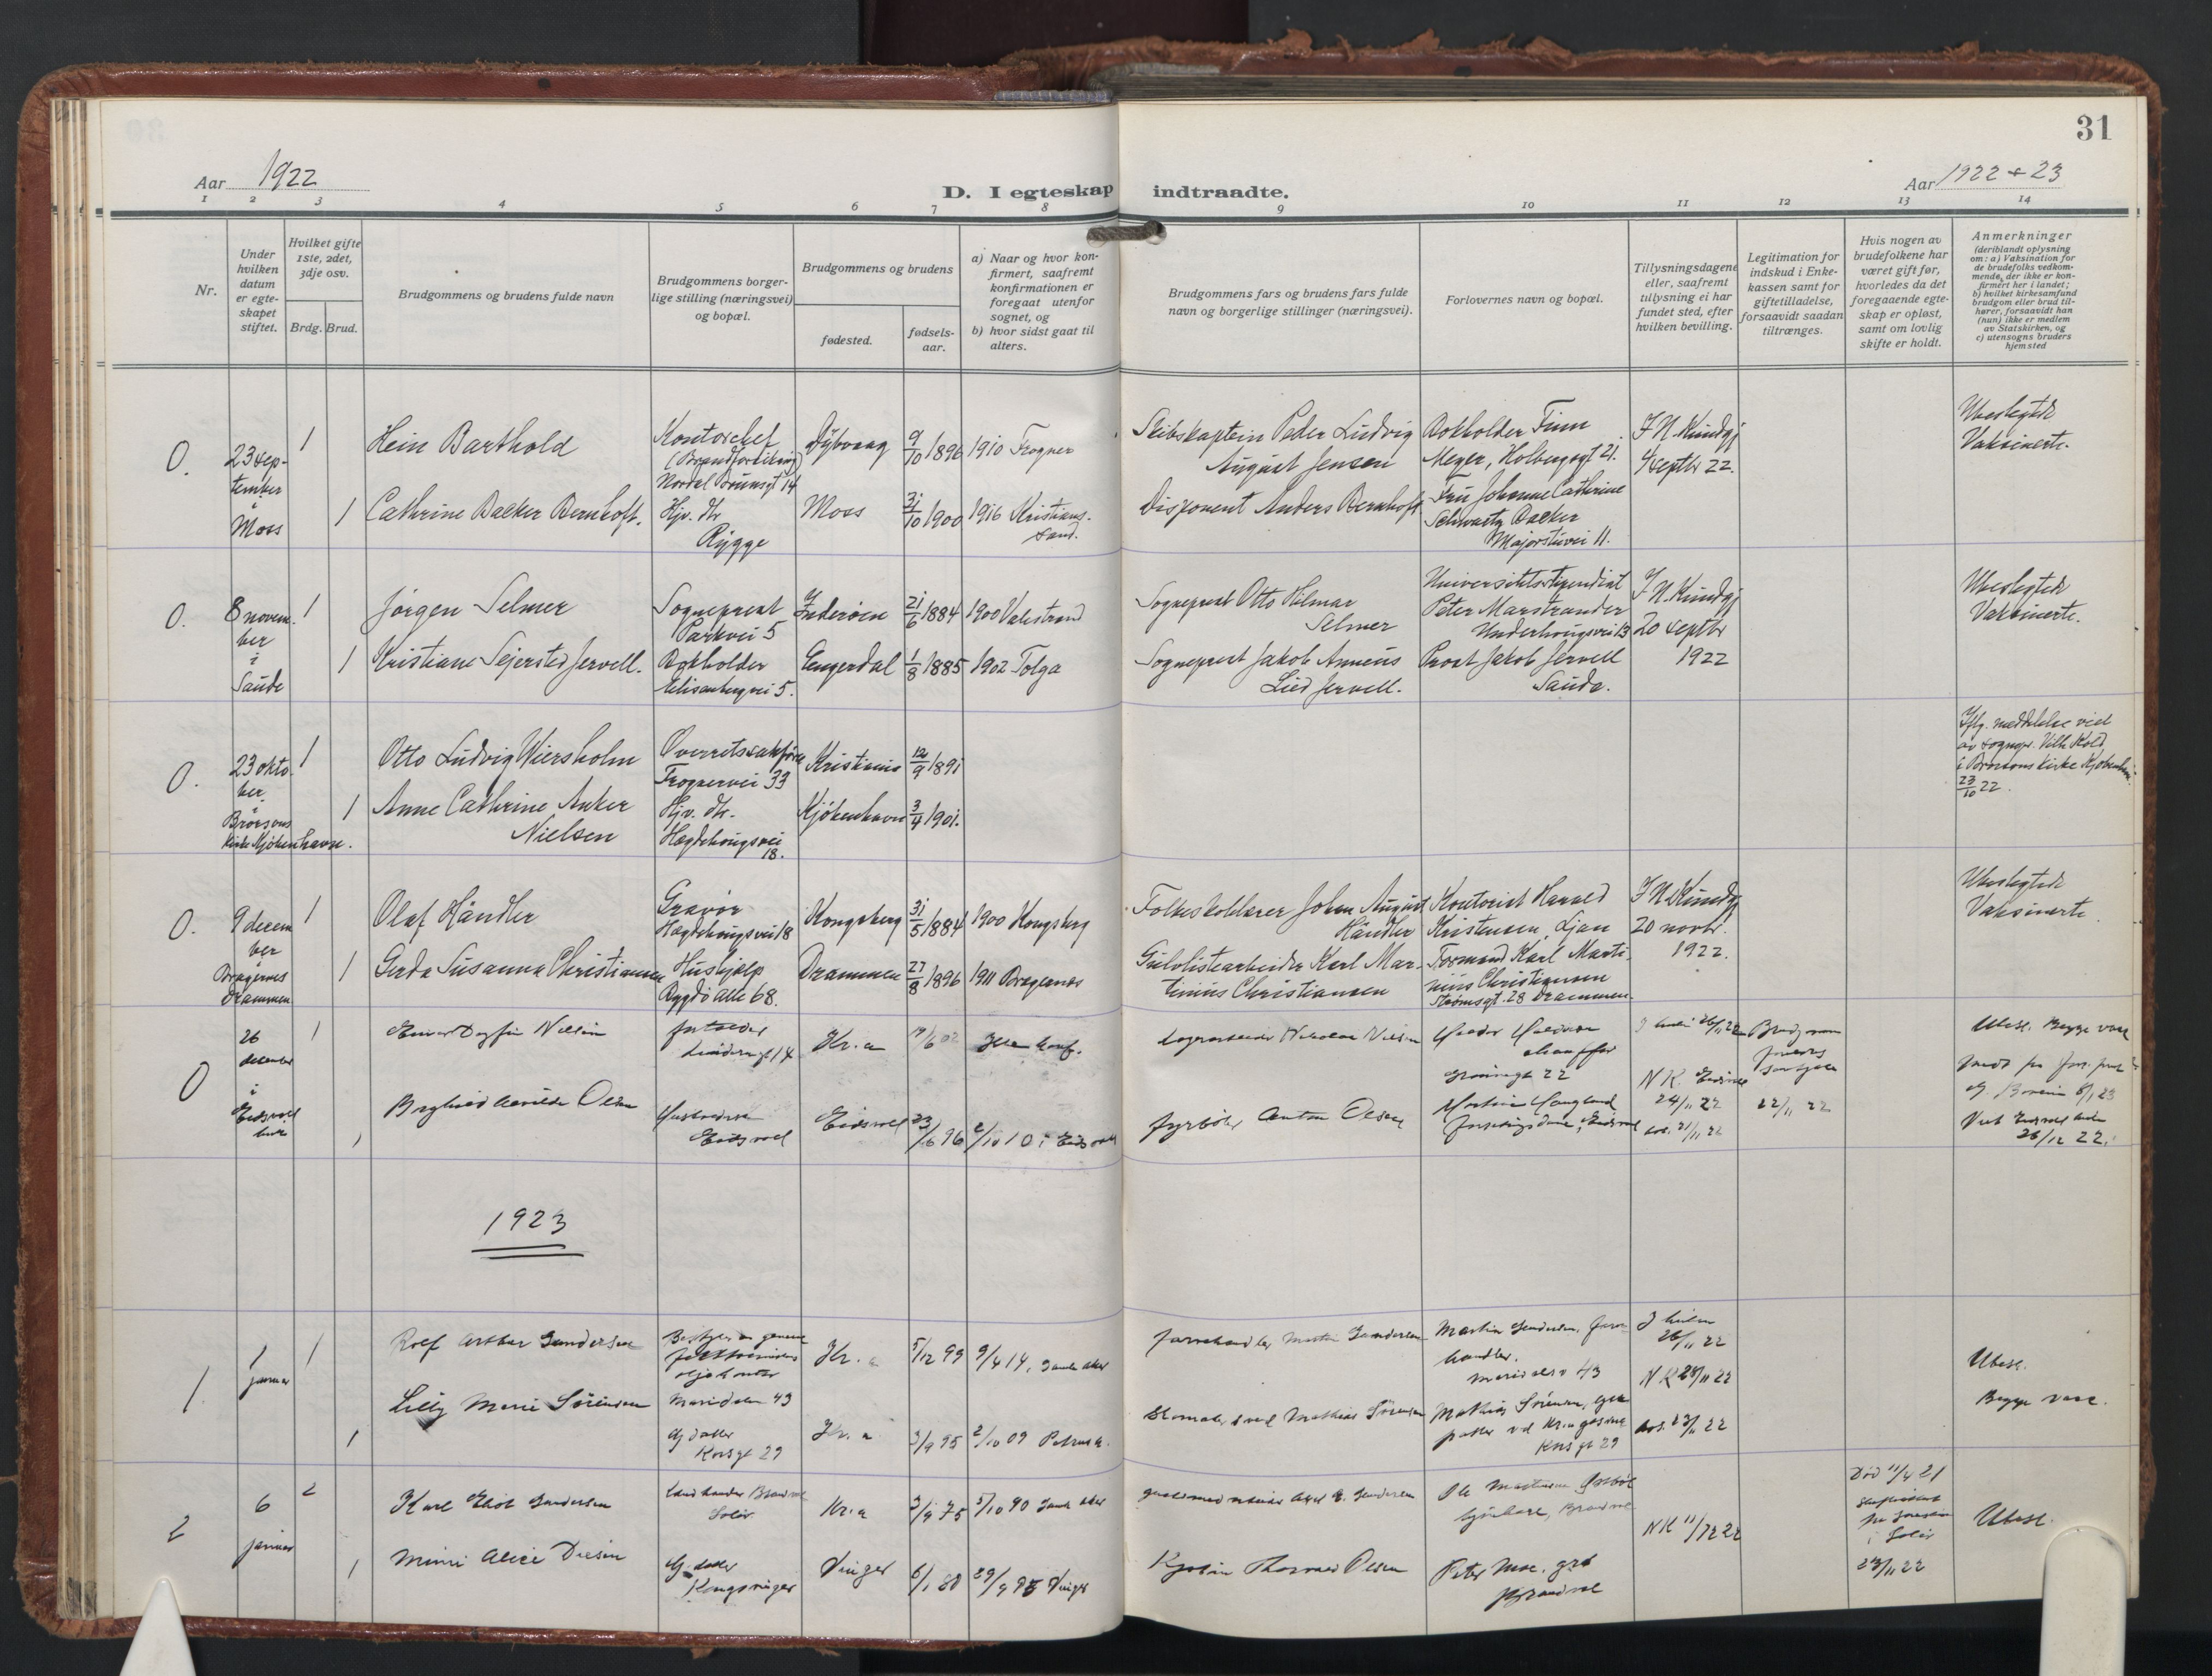 31
Aar 1922
D. I egteskap indtraadte.
Aar 1922 + 23
1 2 3 4 5 6 7 8 9 10 11 12 13 14
Nr.
Under hvilken datum er egteskapet stiftet.
Hvilket gifte 1ste, 2det, 3dje osv.
Brdg. Brud.
Brudgommens og brudens fulde navn
Brudgommens borgerlige stilling (næringsvei) og bopæl.
Brudgommens og brudens
fødested.
fødselsaar.
a) Naar og hvor konfirmert, saafremt konfirmationen er foregaat utenfor sognet, og
b) hvor sidst gaat til alters.
Brudgommens fars og brudens fars fulde navn og borgerlige stillinger (næringsvei).
Forlovernes navn og bopæl.
Tillysningsdagene eller, saafremt tillysning ei har fundet sted, efter hvilken bevilling.
Legitimation for indskud i Enkekassen samt for giftetilladelse, forsaavidt saadan tiltrænges.
Hvis nogen av brudefolkene har været gift før, hvorledes da det foregaaende egteskap er opløst, samt om lovlig skifte er holdt.
Anmerkninger
(deriblandt oplysning om: a) Vaksination for de brudefolks vedkommende, der ikke er konfirmert her i landet;
b) hvilket kirkesamfund brudgom eller brud tilhører, forsaavidt han (hun) ikke er medlem av Statskirken, og
c) utensogns bruders hjemsted
0.
23 september
i
Moss
1
Hein Barthold
Kontorchef
(Brandforsikring)
Nordal Brunsgt 14
Dybvaag
9/10 1896
1910 Frogner
Skibskaptein Peder Ludvig
August Jensen
Bokholder Finn
Meyer, Holbergsgt 21.
F N. Kundgj
4 septbr 22.
Ubeslegtede
Vaksinerte.
1
Cathrine Backer Bernhoft.
Hjv. dtr
Rygge
Moss
31/10 1900
1916 Kristianssand.
Disponent Anders Bernhoft
Fru Johanne Cathrine
Schwartz Backer
Majorstuvei 11.
0.
8 november
i
Saude
1
Jørgen Selmer
Sogneprest
Parkvei 5
Inderøen
21/6 1884
1900 Valestrand
Sogneprest Otto Hilmar
Selmer
Universitetsstipendiat
Peter Marstrander
Underhaugsvei 13
F N. Kundgj
20 septbr
1922
Ubeslegtede
Vaksinerte.
1
Kristiane Sejersted Jervell.
Bokholder
Elisenbergvei 5.
Engerdal
1/8 1885
1902 Tolga
Sogneprest Jakob Anneus
Lied Jervell.
Prost Jakob Jervell
Saude.
0.
23 oktober
i
Brorsons
Kirke Kjøbenhavn.
1
Otto Ludvig Wiersholm
Overretssakfører
Frognervei 33
Kristiania
12/9 1891
Iflg. meddelelse viet
av sognepr. Vilh. Kold
i Brorsons Kirke Kjøbenhavn
23/10 22.
1
Anne Cathrine Anker
Nielsen
Hjv. dtr.
Hægdehaugsvei
18.
Kjøbenhavn
3/4 1901.
0.
9 december
Bragernes
Drammen
1
Olaf Händler
Gravør
Hægdehaugsvei 18
Kongsberg
31/5 1884
1900 Kongsberg
Folkeskolelærer Johan August
Händler
Kontorist Harald
Kristensen, Ljan
F N. Kundgj
20 novbr.
1922.
Ubeslegtede
Vaksinerte
1
Gerda Susanna Christiansen
Hushjælp
Bygdø alle 68.
Drammen
27/8 1896
1911 Bragernes
Gulvlistearbeider Karl Martinius Christiansen
Formand Karl Martinius Christiansen
Strømsgt. 28 Drammen.
0
26
december
i
Eidsvold
kirke
1
Einar Dagfin Nilsen
14
Kr.a
19/6 02
Nikolai Nilsen
22
N K. Eidsvold
24/11 22
22/11 22
Ubesl. Begge vacc
Viet Eidsvold kirke
26/12 22.
1
Olsen
Eidsvold
Eidsvold
fyrbøter Anton Olsen
1923
1.
1
januar
1
Rolf Arthur Gundersen
Maridalen 43
Kr. a
5/12 99
9/4 14. Gamle Aker
farvehandler Martin Gundersen
Martin Gundersen, farvehandler.
43
26/11 22
N K 28/11 22
Ubesl.
Begge vacc.
1
Lilly Marie Sørensen
Hj datter
Korsgt 29
Kr. a
3/9 95
2/10 09 Petrus k.
Mathias Sørensen
Mathias Sørensen,
Korsgt 29
2
6
januar
2
Karl Gundersen
Solør
Kr.a
3/9 75
5/10 90 Gamle Aker
Brandval
N K 11/12 22
Død 11/4 21
i Solør
23/11 22
Ubesl.
1
Minni Alice Olsen
Hj. datter
Kongsvinger
Vinger
6/1 80
29/9 95 Vinger
Thorvald Olsen
Peter Moe, grb
Brandval